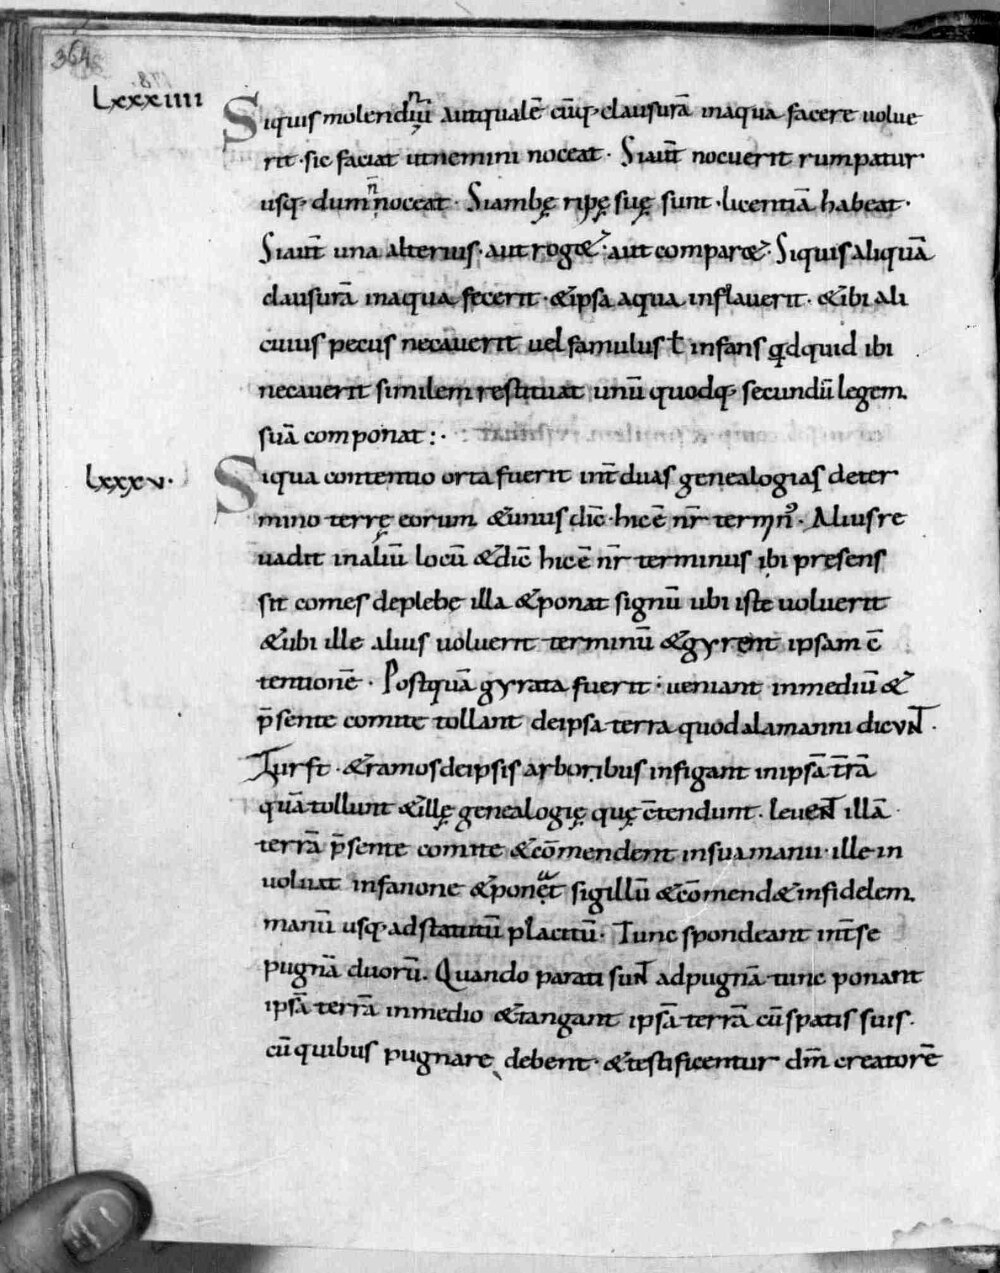 364
Lxxxiiii Siquis molendinū autqualē cūq; clausurā inaqua facere uolue
rit · sic faciat utnemini noceat · Siaut̄ nocuerit rumpatur
usq; dum n̄ noceat · Siambę ripę suę sunt · licentiā habeat ·
Siaut̄ una alterius · aut rog& · aut compar& · Siquis aliquā
clausurā inaqua fecerit · &ipsa aqua inflauerit · &ibi ali
cuius pecus necauerit uel famulus ł infans qđquid ibi
necauerit similem restituat unū quodq; secundū legem
suā componat : ·
Lxxxv · Siqua contentio orta fuerit int̄ duas genealogias deter
mino terrę eorum &unus dic̄ · hic ē nr̄ termin᾽ · Alius re
uadit inaliū locū &dic̄ hic ē nr̄ terminus ibi pręsens
sit comes deplebe illa &ponat signū ubi iste uoluerit
&ubi ille alius uoluerit terminū &gyrent ipsam c̄
tentionē · Postquā gyrata fuerit · ueniant inmediū &
p̄sente comite tollant deipsa terra quod alamanni dicunt ·
Turft · &ramos deipsis arboribus infigant inipsā t̄rā
quā tollunt &illę genealogię quę c̄tendunt · leuent illā
terrā p̄sente comite &cōmendent insua manu · ille in
uoluat infanone &ponat sigillū &cōmend& infidelem
manū usq; ad statutū placitū · Tunc spondeant int̄ se
pugnā duorū. Quando parati sunt ad pugnā tunc ponant
ipsā terrā inmedio &tangant ipsā terrā cū spatis suis ·
cū quibus pugnare debent · &testificentur dm̄ creatorē